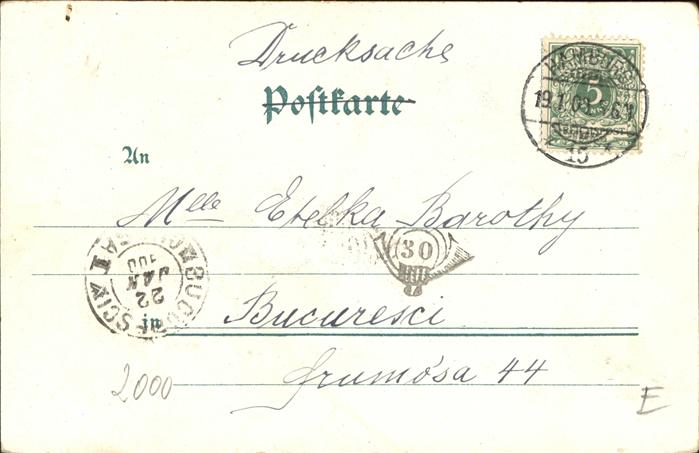 Drucksache
Postkarte
HAMBURG
5
19.1.00
15
An
Mlle Etelka Barothy
30
BUCURESCI
22 JAN
in Bucuresci
Frumósa 44
2000
E